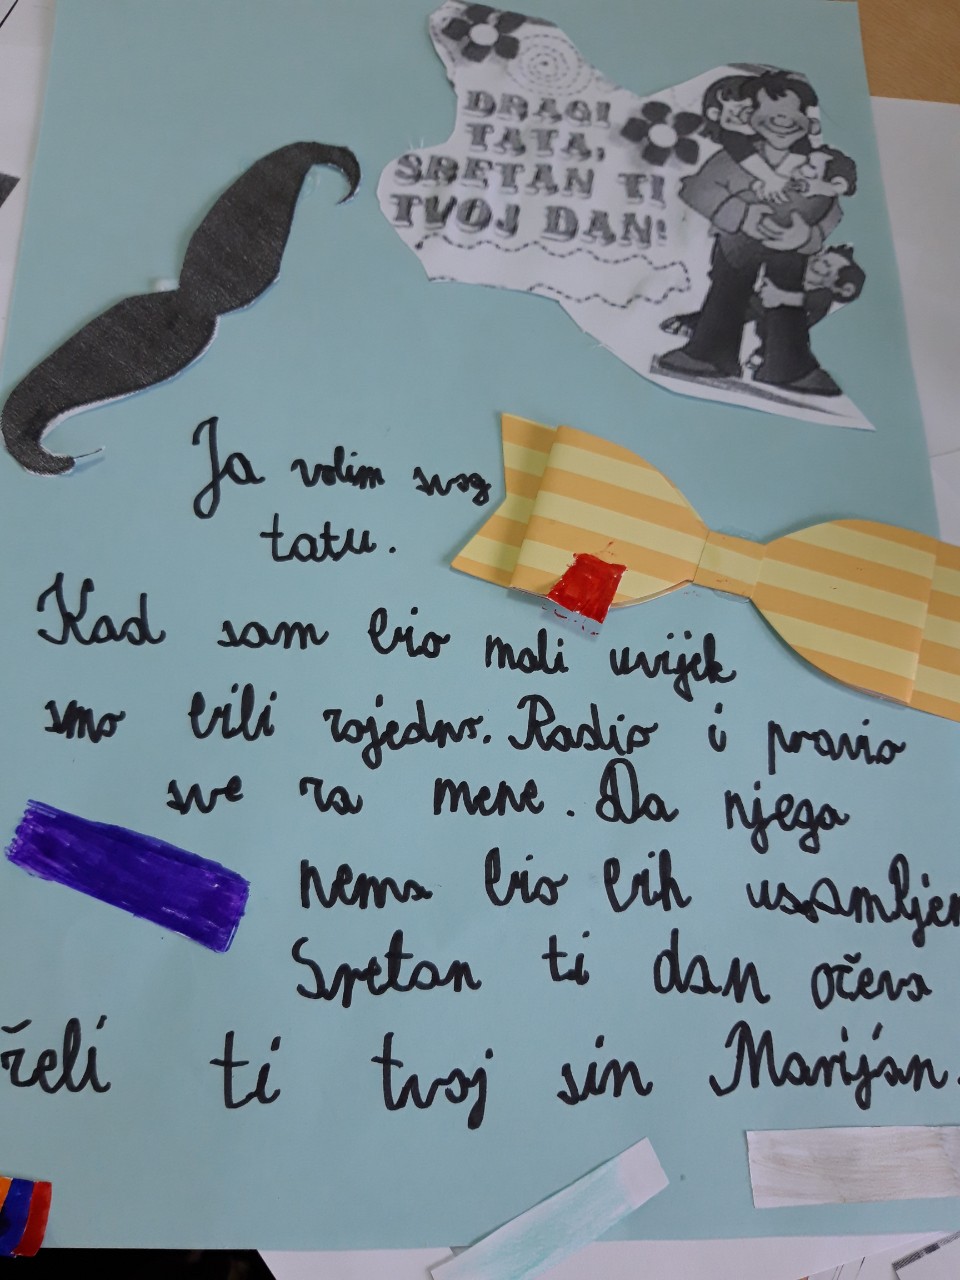 DRAGI
TATA,
SRETAN TI
TVOJ DAN!
Ja volim svog
tatu.
Kad sam bio mali uvijek
smo bili zajedno. Radio i pravio
sve za mene. Da njega
nema bio bih usamljen
Sretan ti dan očeva
želi ti tvoj sin Marijan.